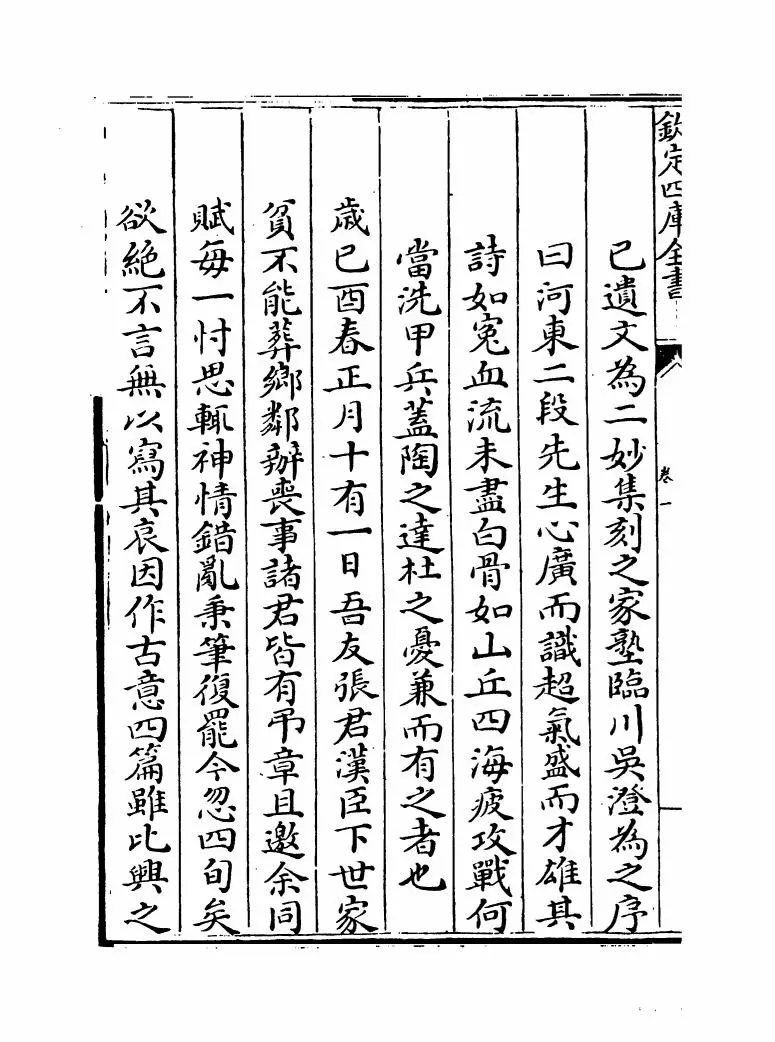 欽定四庫全書
卷一
已遺文為二妙集刻之家塾臨川吳澄為之序
曰河東二段先生心廣而識超氣盛而才雄其
詩如寃血流未盡白骨如山丘四海疲攻戰何
當洗甲兵蓋陶之達杜之憂兼而有之者也
歲已酉春正月十有一日吾友張君漢臣下世家
貧不能葬鄉鄰辦喪事諸君皆有弔章且邀余同
賦每一忖思輒神情錯亂秉筆復罷今忽四旬矣
欲絶不言無以寫其哀因作古意四篇雖比興之